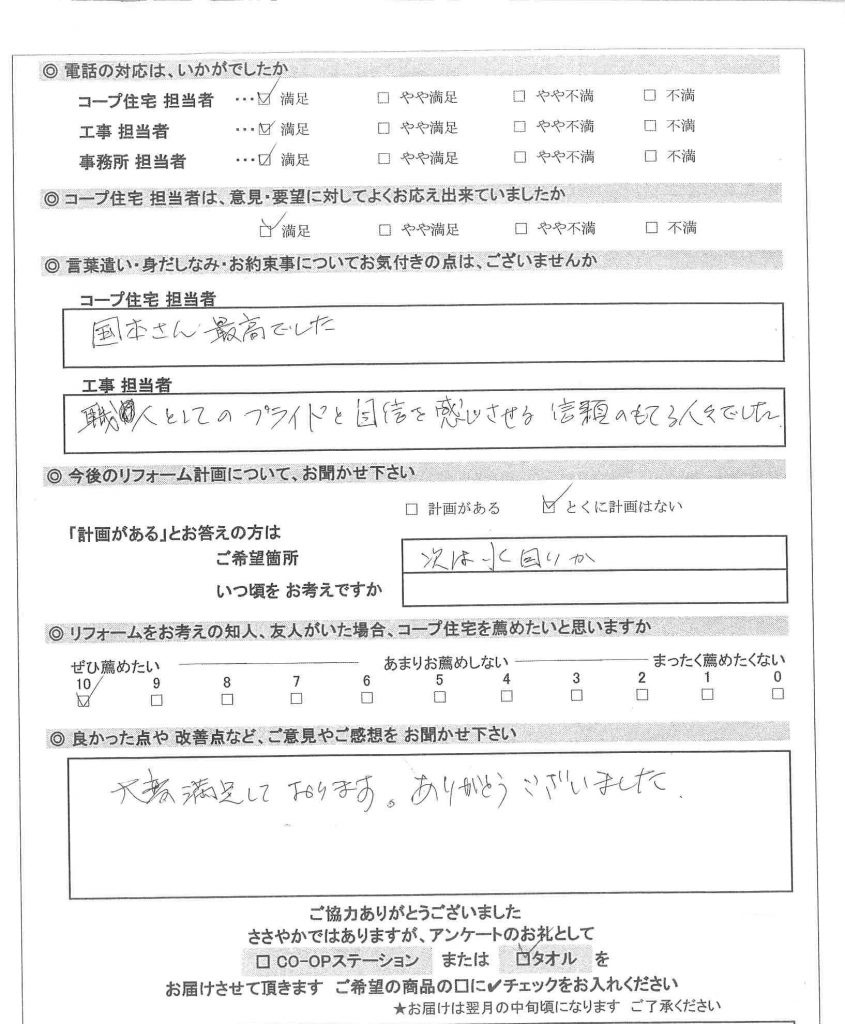 ◎ 電話の対応は、いかがでしたか
コープ住宅 担当者 …☑ 満足 □ やや満足 □ やや不満 □ 不満
工事 担当者 …☑ 満足 □ やや満足 □ やや不満 □ 不満
事務所 担当者 …☑ 満足 □ やや満足 □ やや不満 □ 不満
◎ コープ住宅 担当者は、意見・要望に対してよくお応え出来ていましたか
☑ 満足 □ やや満足 □ やや不満 □ 不満
◎ 言葉遣い・身だしなみ・お約束事についてお気付きの点は、ございませんか
コープ住宅 担当者
国本さん 最高でした
工事 担当者
職人としてのプライドと自信を感じさせる 信頼のもてる人々でした
◎ 今後のリフォーム計画について、お聞かせ下さい
□ 計画がある ☑ とくに計画はない
「計画がある」とお答えの方は
ご希望箇所 次は水回りか
いつ頃を お考えですか
◎ リフォームをお考えの知人、友人がいた場合、コープ住宅を薦めたいと思いますか
ぜひ薦めたい あまりお薦めしない まったく薦めたくない
10 9 8 7 6 5 4 3 2 1 0
☑ □ □ □ □ □ □ □ □ □ □
◎ 良かった点や 改善点など、ご意見やご感想を お聞かせ下さい
大変満足しております。ありがとうございました.
ご協力ありがとうございました
ささやかではありますが、アンケートのお礼として
□ CO-OPステーション または ☑タオル を
お届けさせて頂きます ご希望の商品の□に✔チェックをお入れください
★お届けは翌月の中旬頃になります ご了承ください